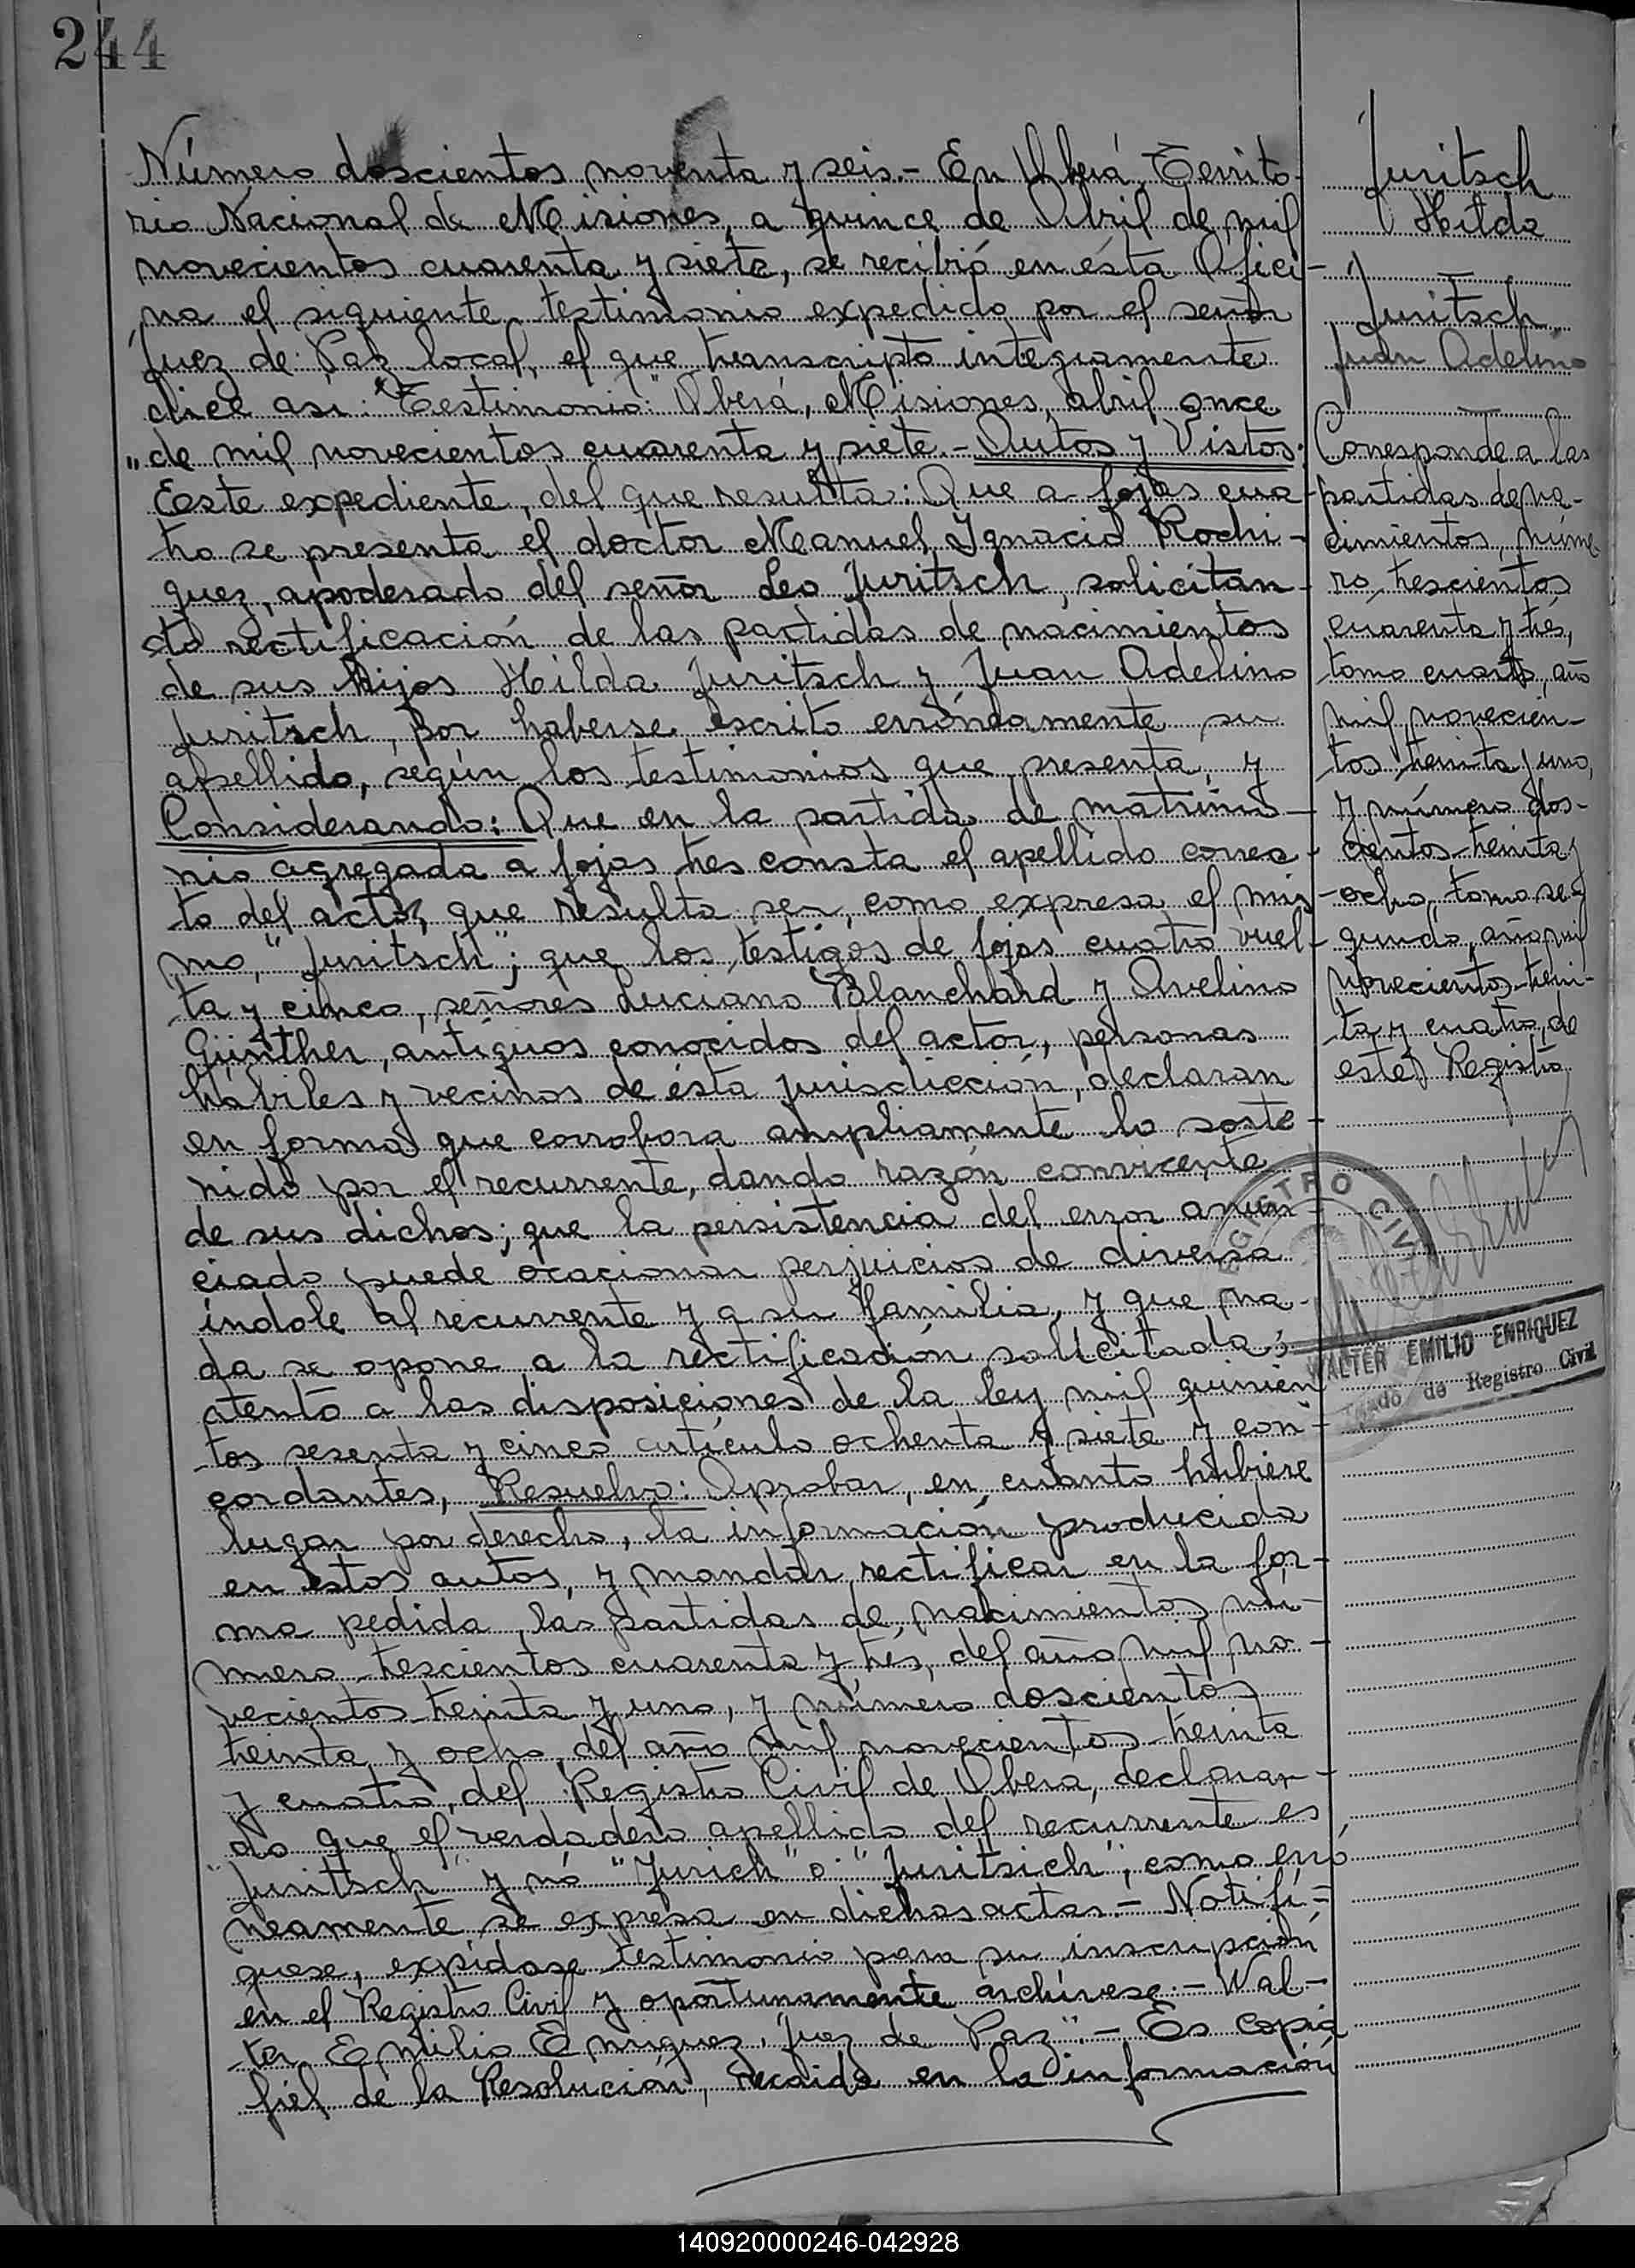 244
Número doscientos noventa y seis.- En Oberá, Territo-
rio Nacional de Misiones, a quince de Abril de mil
novecientos cuarenta y siete, se recibió en ésta Ofici-
na el siguiente testimonio expedido por el señor
Juez de Paz local, el que transcripto integramente
dice asi: "Testimonio: "Oberá, Misiones, abril once
"de mil novecientos cuarenta y siete.- Autos y Vistos:
Este expediente, del que resulta: Que a fojas cua-
tro se presenta el doctor Manuel Ignacio Rodri-
guez, apoderado del señor Leo Juritsch, solicitan-
do rectificación de las partidas de nacimientos
de sus hijos Hilda Juritsch y Juan Adelino
Juritsch, por haberse escrito erróneamente su
apellido, según los testimonios que presenta, y
Considerando: Que en la partida de matrimo-
nio agregada a fojas tres consta el apellido correc-
to del actor, que resulta ser, como expresa el mis-
mo, "Juritsch"; que los testigos de fojas cuatro vuel-
ta y cinco, señores Luciano Blanchard y Avelino
Günther, antiguos conocidos del actor, personas
hábiles y vecinos de ésta jurisdicción, declaran
en forma que corrobora ampliamente lo soste-
nido por el recurrente, dando razón convicente
de sus dichos; que la persistencia del error anun-
ciado puede ocacionar perjuicios de diversa
índole al recurrente y a su familia, y que na-
da se opone a la rectificación solicitada;
atento a las disposiciones de la ley mil quinien-
tos sesenta y cinco artículo ochenta y siete y con-
cordantes, Resuelvo: Aprobar, en cuanto hubiere
lugar por derecho, la información producida
en estos autos, y mandar rectificar en la for-
ma pedida, las partidas de nacimientos nú-
mero trescientos cuarenta y trés, del año mil no-
vecientos treinta y uno, y número doscientos
treinta y ocho, del año mil novecientos treinta
y cuatro, del Registro Civil de Oberá, declaran-
do que el verdadero apellido del recurrente es
"Juritsch" y nó "Jurich" o "Juritsich", como erró-
neamente se expresa en dichas actas.- Notifí-
quese, expídase testimonio para su inscripción
en el Registro Civil y oportunamente archívese.- Wal-
ter Emilio Enriquez, Juez de Paz".- Es copia
fiel de la Resolución, recaida en la información
Juritsch
Hilda
Juritsch
Juan Adelino
Corresponde a las
partidas de na-
cimientos, núme-
ro trescientos
cuarenta y trés,
tomo cuarto, año
mil novecien-
tos treinta y uno,
y número dos-
cientos treinta y
ocho, tomo se-
gundo, año mil
novecientos trein-
ta y cuatro, de
este Registro
REGISTRO CIVIL
WALTER EMILIO ENRIQUEZ
de Registro Civil
140920000246-042928